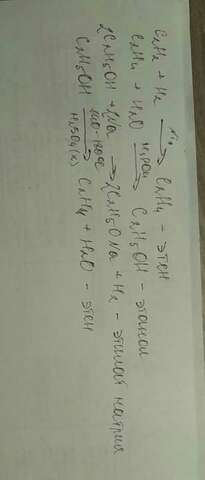 C₂H₂ + H₂ →(Ni) C₂H₄ - этен
C₂H₄ + H₂O →(H₃PO₄) C₂H₅OH - этанол
2C₂H₅OH + 2Na → 2C₂H₅ONa + H₂ - этилат натрия
C₂H₅OH →(140-180°C, H₂SO₄(к)) C₂H₄ + H₂O - этен